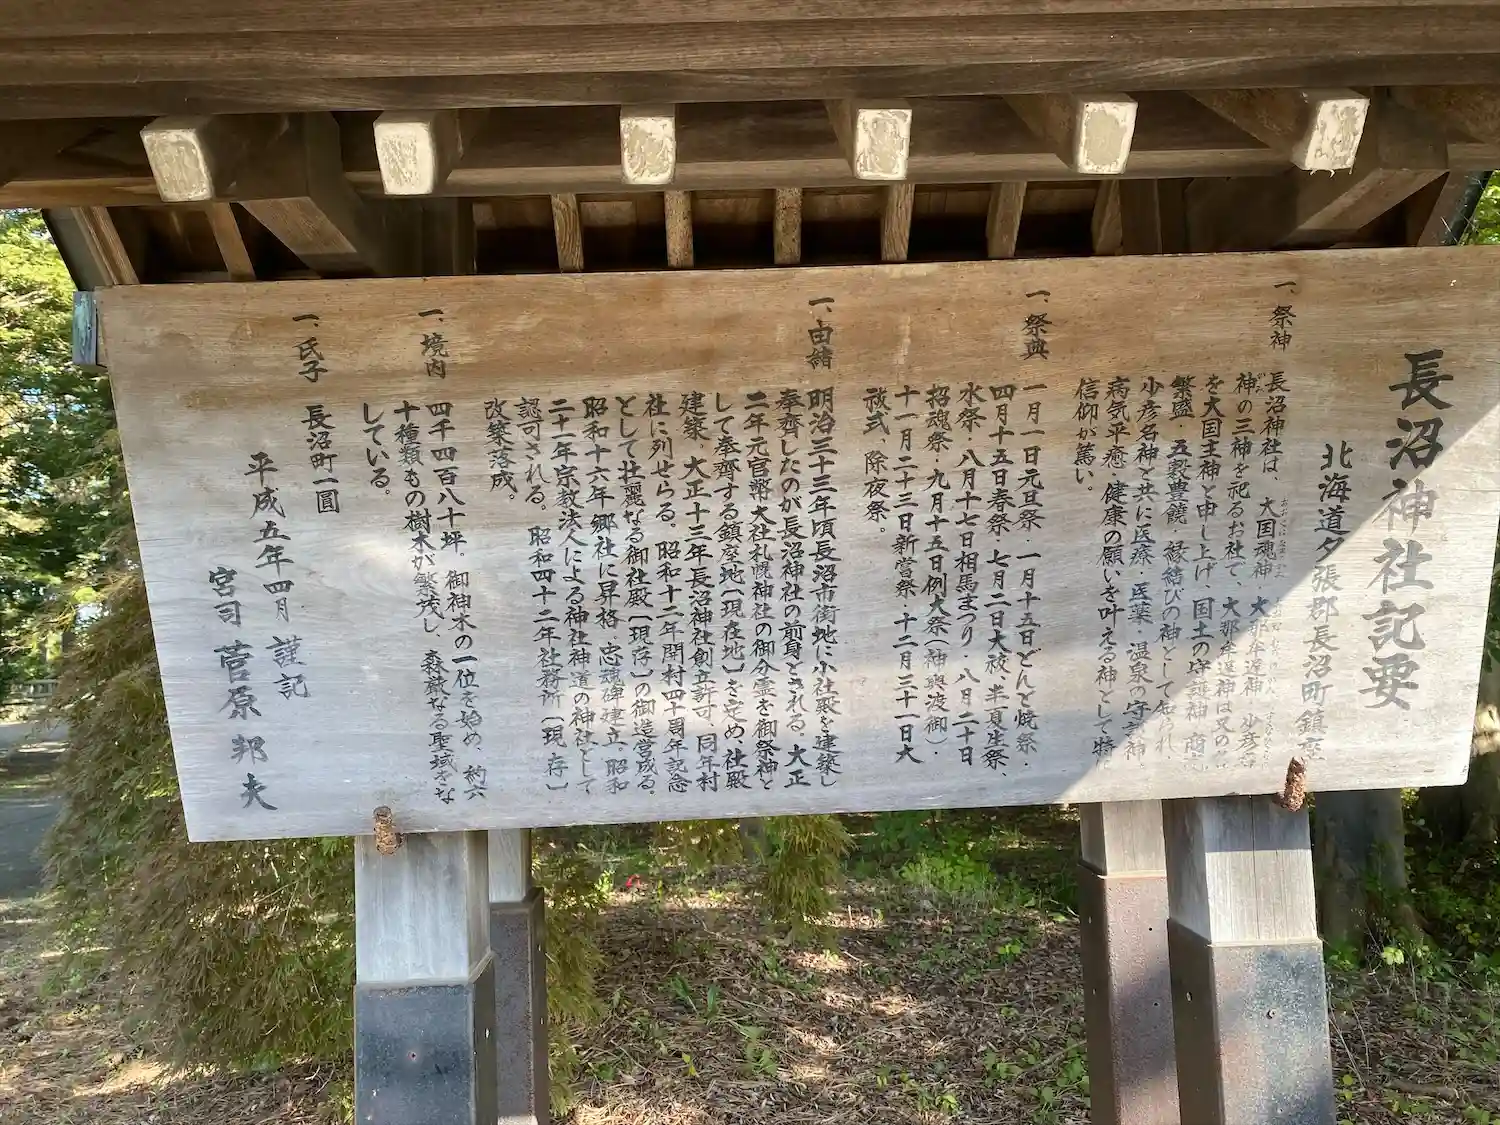 長沼神社記要
北海道夕張郡長沼町鎮座
一、祭神
長沼神社は、大国魂神 大那牟遅神 少彦名
神の三神を祀るお社で、大那牟遅神は又の
を大国主神と申し上げ、国土の守護神 商売
繁盛・五穀豊饒・縁結びの神として知られ、
少彦名神と共に医療・医薬・温泉の守護神、
病気平癒・健康の願いを叶える神として特
信仰が篤い。
一、祭典
一月一日元旦祭・一月十五日どんど焼祭・
四月十五日春祭・七月二日大祓、半夏生祭、
水祭・八月十七日相馬まつり・八月二十日
招魂祭・九月十五日例大祭(神輿渡御)・
十一月二十三日新嘗祭・十二月三十一日大
祓式、除夜祭。
一、由緒
明治三十三年頃長沼市街地に小社殿を建築し
奉齊したのが長沼神社の前身とされる。大正
二年元官幣大社札幌神社の御分霊を御祭神と
して奉齊する鎮座地〔現在地〕を定め、社殿
建築、大正十三年長沼神社創立許可、同年村
社に列せらる。昭和十二年開村四十周年記念
として壮麗なる御社殿〔現存〕の御造営成る。
昭和十六年郷社に昇格、忠魂碑建立。昭和
二十一年宗教法人による神社神道の神社として
認可される。昭和四十二年社務所〔現存〕
改築落成。
一、境内
四千四百八十坪。御神木の一位を始め、約六
十種類もの樹木が繁茂し、森厳なる聖域をな
している。
一、氏子
長沼町一圓
平成五年四月 謹記
宮司 菅原邦夫